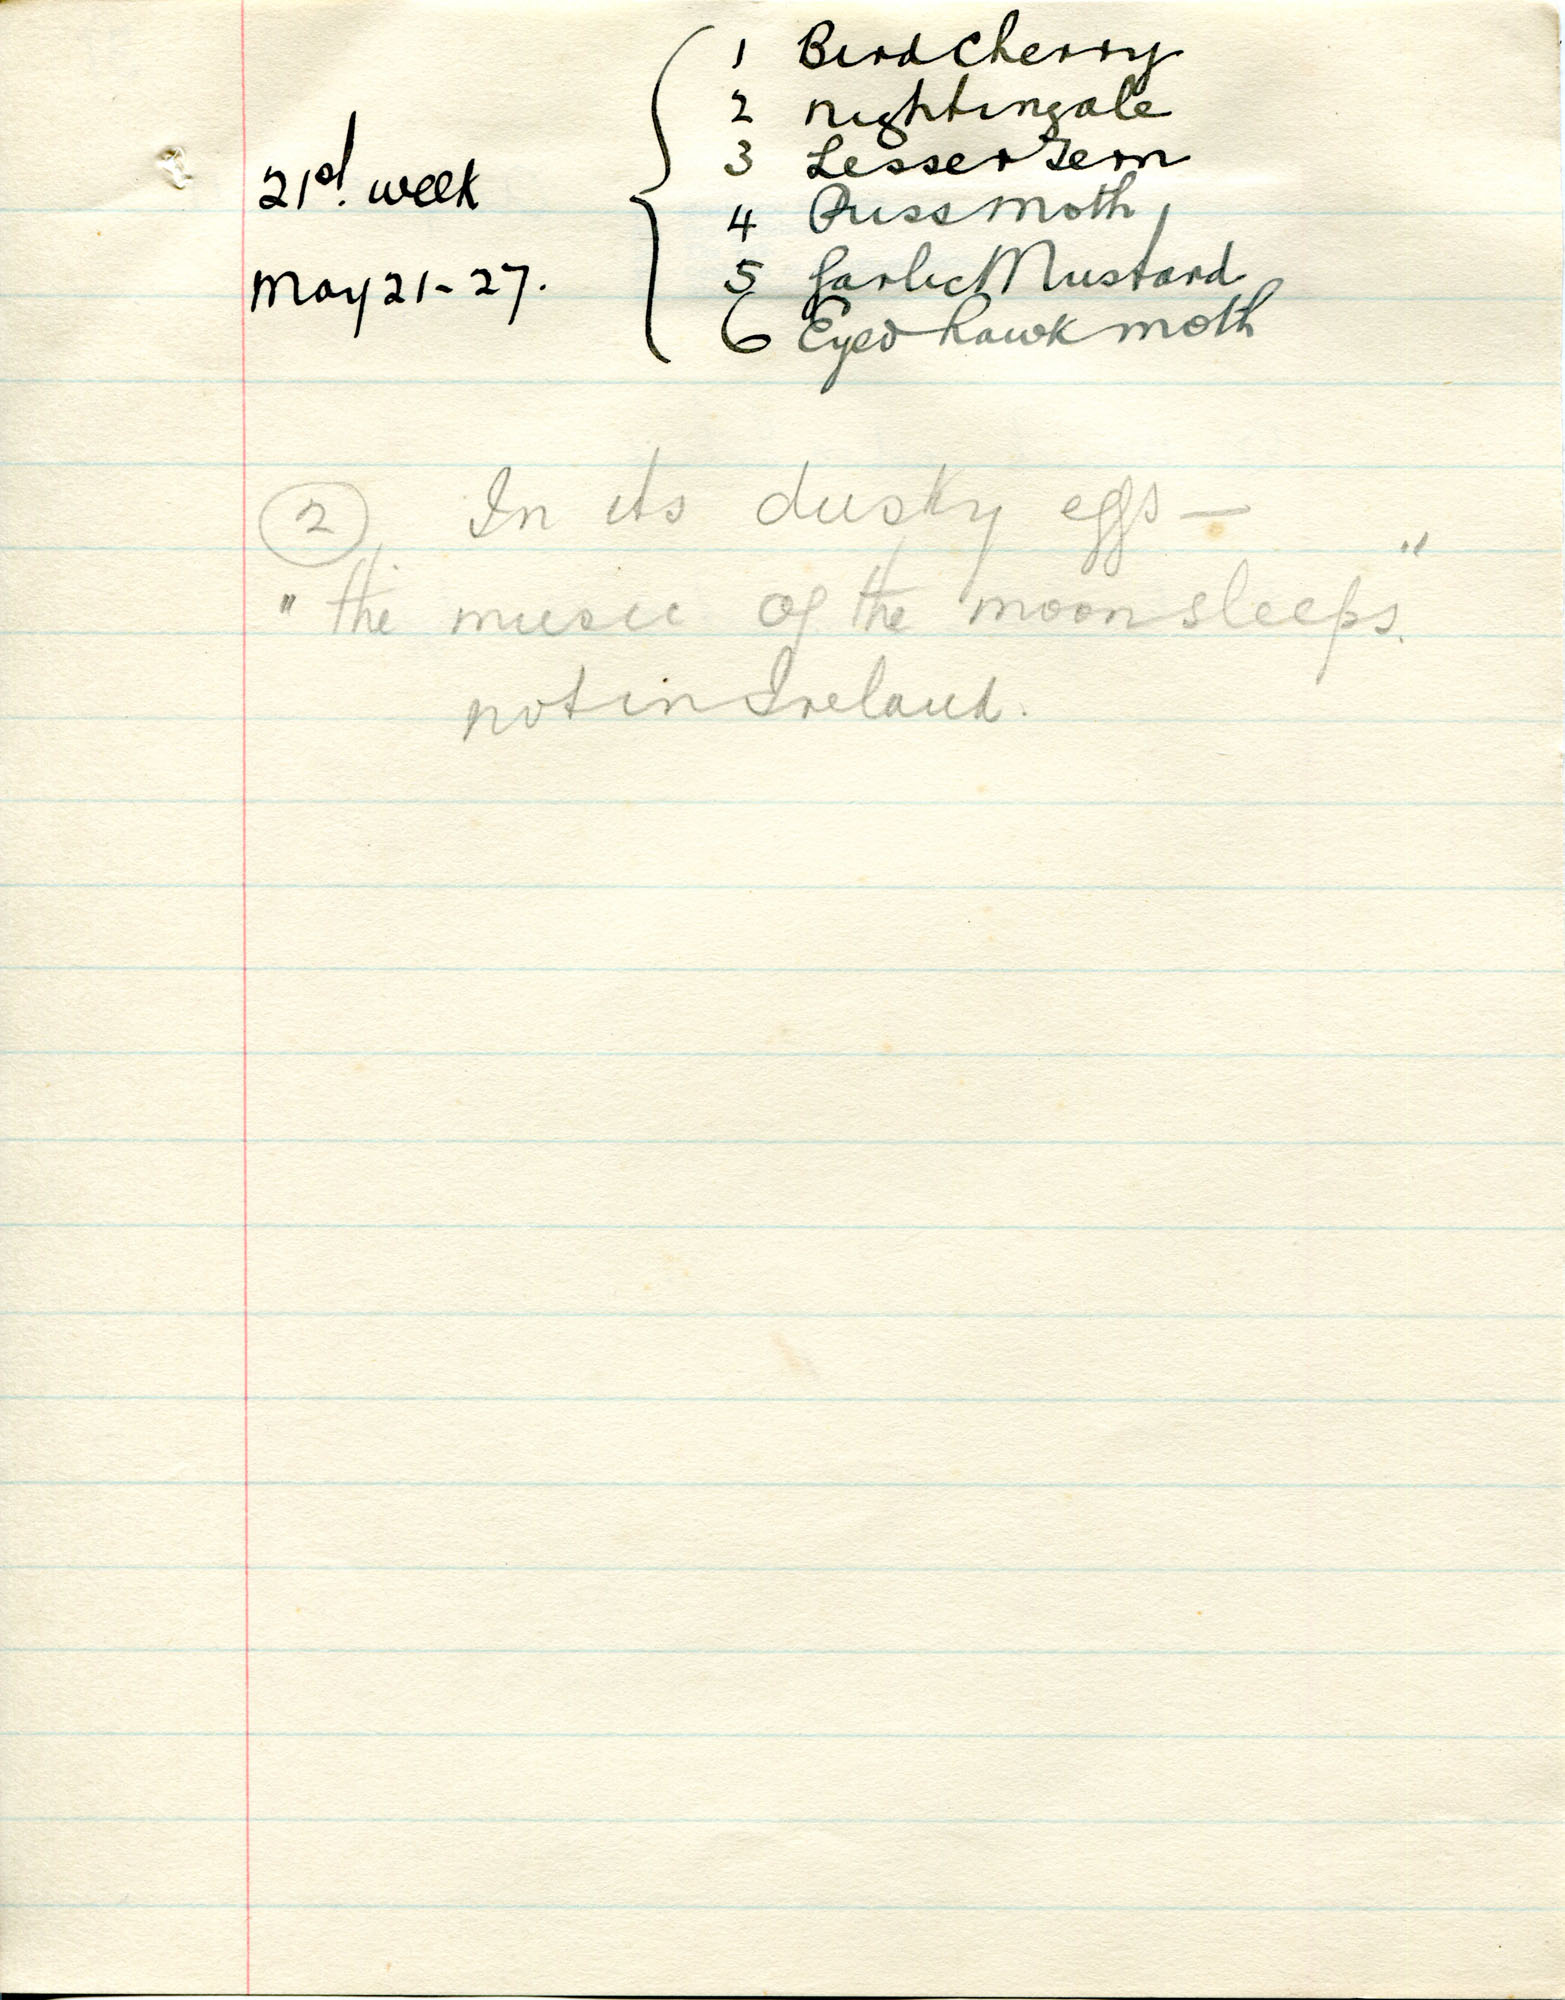 1 Bird Cherry
2 Nightingale
3 Lesser Tern
21st. week
4 Puss Moth
May 21-27.
5 Garlic Mustard
6 Eyed hawk moth
2 In its dusky eggs —
"the music of the moon sleeps."
not in Ireland.